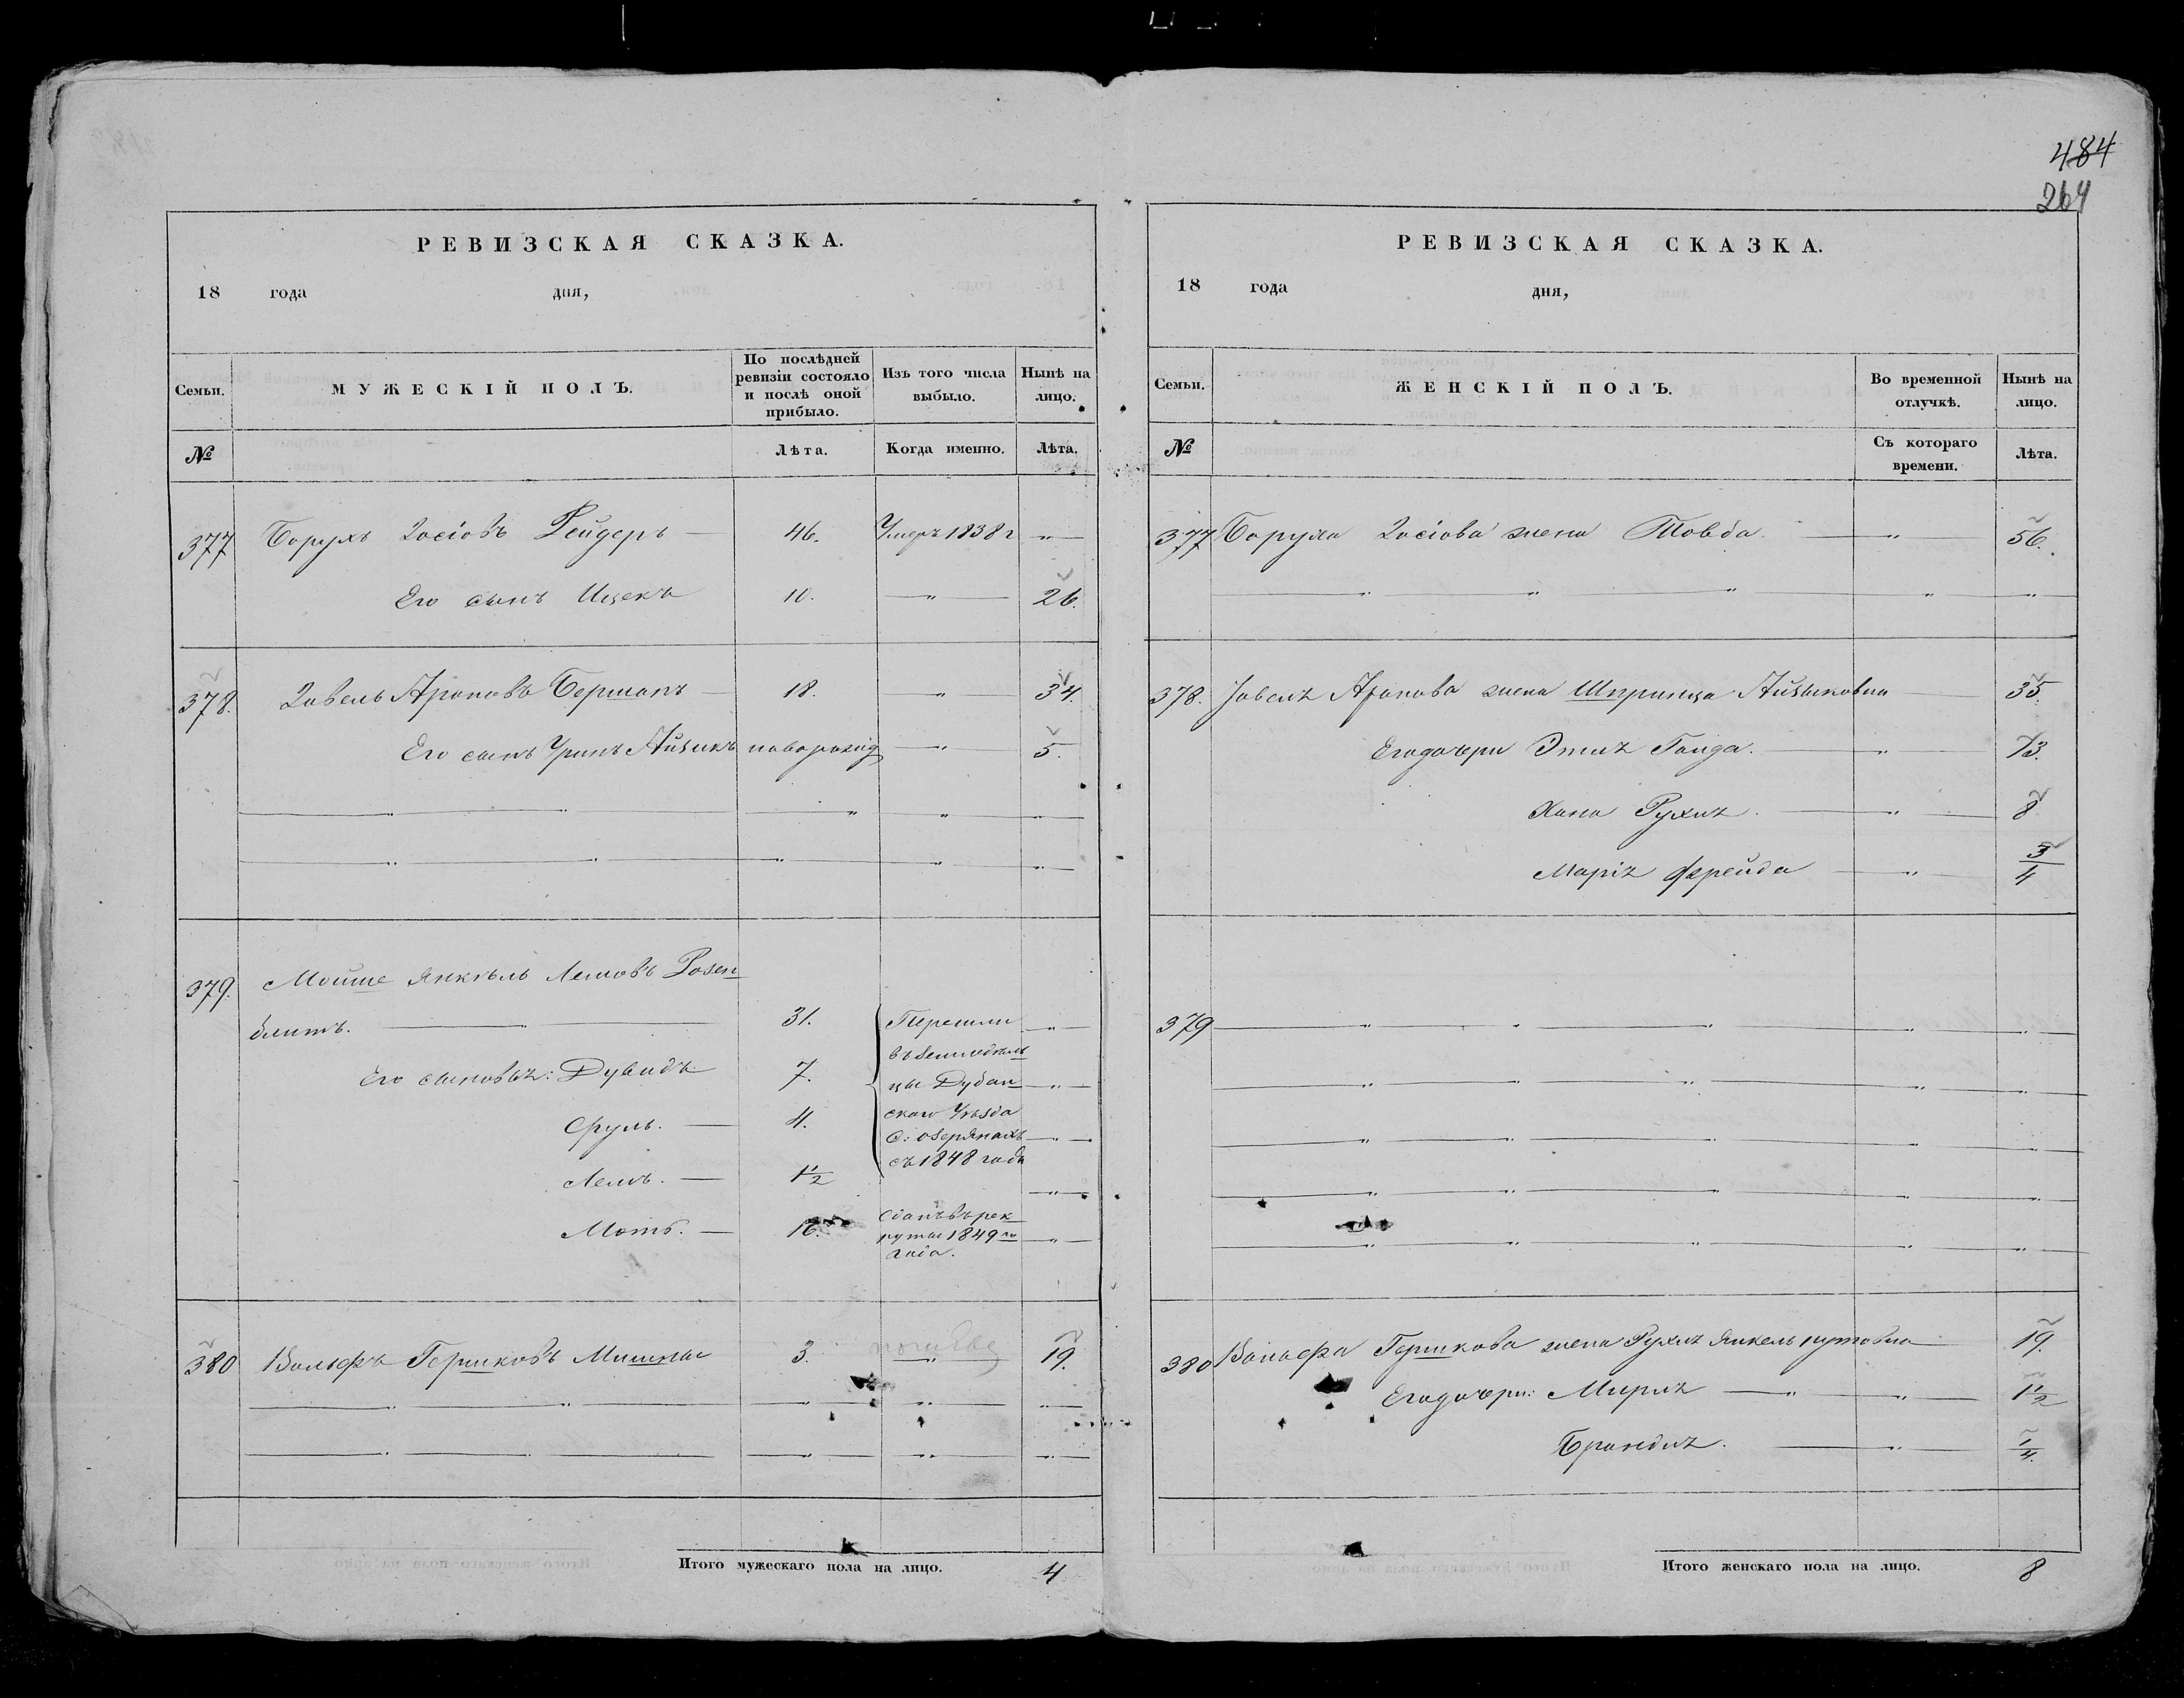 484
264
РЕВИЗСКАЯ СКАЗКА.
18 года дня,
Семьи. МУЖЕСКІЙ ПОЛЪ. По послѣдней ревизіи состояло и послѣ оной прибыло. Изъ того числа выбыло. Нынѣ на лицо.
№ Лѣта. Когда именно. Лѣта.
377 Борухъ Іосіовъ Рейдеръ — 46. Умеръ 1838 г — " —
Его сынъ Ицекъ 10. — " — 26.
378. Іовель Ароновъ Берманъ — 18. — " — 34.
Его сынъ Уринъ Айзикъ новорожд — " 5.
379. Мойше Янкель Лемовъ Розен
блитъ. — " — 31. Перешли — " —
въ земледѣль
Его сыновья: Дувидъ 7. цы Дубен — " —
Сруль. — 4. скаго Уѣзда
с: озерянахъ — " —
съ 1848 года
Лемъ. — 1 1/2 — " —
Мотъ. — 16. Сданъ въ рек
руты 1849 го — " —
года.
380 Вольфъ Гершковъ Мишны 3. — " — 19.
Итого мужескаго пола на лицо. 4
РЕВИЗСКАЯ СКАЗКА.
18 года дня,
Семьи. ЖЕНСКІЙ ПОЛЪ. Во временной отлучкѣ. Нынѣ на лицо.
№ Съ котораго времени. Лѣта.
377 Боруха Іосіова жена Товба — " — 56.
378. Іовеля Аронова жена Шпринца Айзиковна — 35.
Его дочери Этля Гольда. — " — 13.
Хана Рухля. — " — 8
Марія Фрейда — " — 3/4
379 — " —
380 Вольфа Гершкова жена Рухля Янкель 19.
Его дочери: Мирля — " — " — 1 1/2
Брандля. — " — 1/4.
Итого женскаго пола на лицо. 8